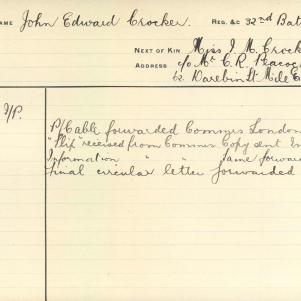 NAME John Edward Crocker. REG. &c 32nd Bat
NEXT OF KIN Miss J. M. Crock
ADDRESS c/o Mr C. R. Peacoc
62 Darebin St Mile E
P/Cable forwarded Commrs London
"Slip" received from Commrs Copy sent In
Information " " same forwar
final circular letter forwarded